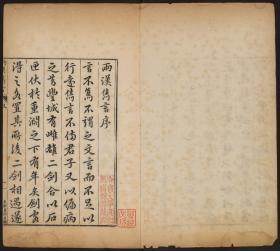 兩漢雋言序
言不雋不謂之文言而不足以
行遠雋言不傷君子又以偏病
之昔豐城有雌雄二劍合以石
匣伏於重淵之下有年矣劍客
得之各置其所後二劍相遇遂